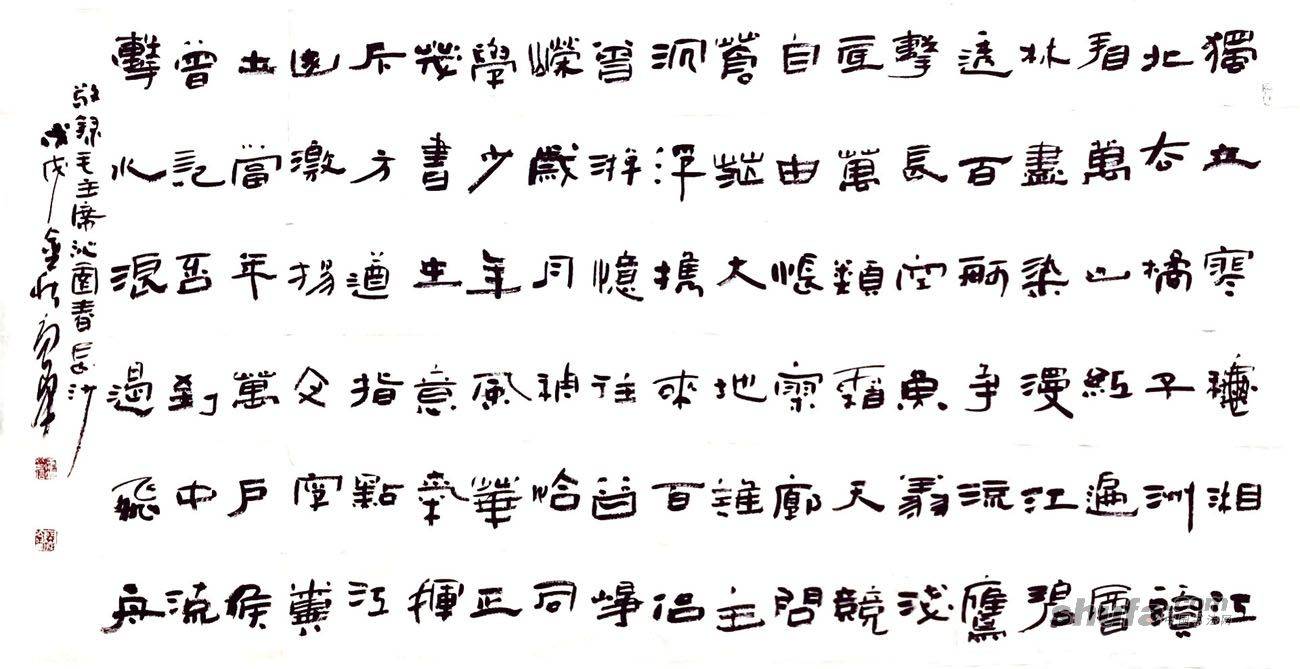 獨立寒龝湘江
北去橘子洲頭
看萬山紅遍層
林盡染漫江碧
透百舸爭流鷹
擊長空魚翔淺
底萬類霜天競
自由悵寥廓問
蒼茫大地誰主
沉浮攜來百侣
曾游憶往昔崢
嶸歲月稠恰同
學少年風華正
茂書生意氣揮
斥方遒指點江
山激揚文字糞
土當年萬戶侯
曾記否到中流
擊水浪遏飛舟
敬録毛主席沁園春長沙
戊戌金秋